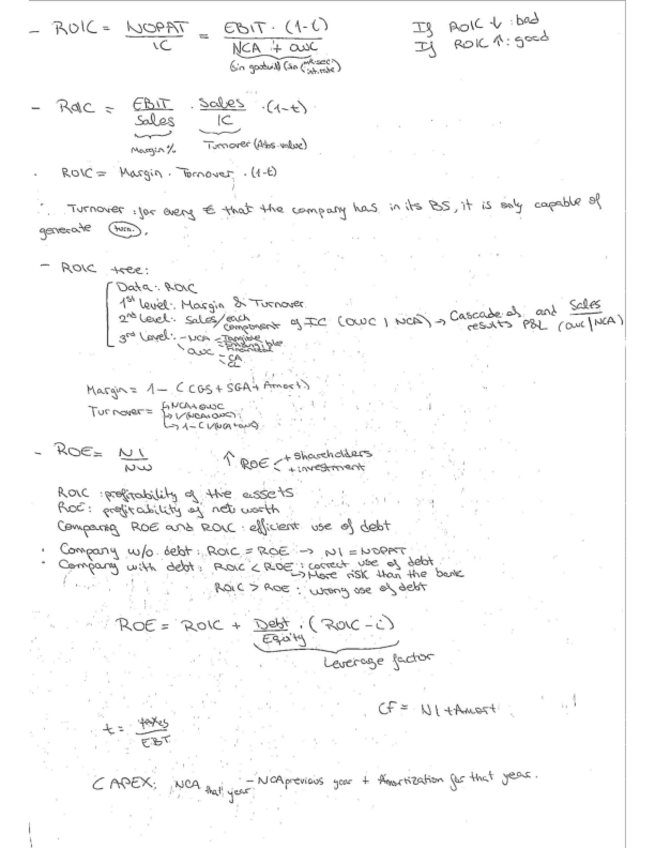 - ROIC = NOPAT / IC = EBIT · (1-t) / NCA + OWC
(sin goodwill)
If ROIC ↓ : bad
If ROIC ↑ : good
- ROIC = EBIT / Sales · Sales / IC · (1-t)
Margin % Turnover (Abs. value)
· ROIC = Margin · Turnover · (1-t)
∴ Turnover : for every € that the company has in its BS, it is only capable of
generate (turn.).
- ROIC tree:
Data: ROIC
1st level: Margin & Turnover
2nd level: Sales/each component of IC (OWC / NCA) → Cascade of results P&L and Sales / (OWC/NCA)
3rd level: - NCA - Tangible
- Intangible
- Financial
OWC - CA
- CL
Margin = 1 - (CGS + SGA + Amort)
Turnover = NCA + OWC
→ 1/(NCA+OWC)
- ROE = NI / NW
↑ ROE + Shareholders
+ investment
ROIC : profitability of the assets
ROE : profitability of net worth
Comparing ROE and ROIC : efficient use of debt
· Company w/o. debt : ROIC = ROE → NI = NOPAT
· Company with debt : ROIC < ROE : correct use of debt
→ More risk than the bank
ROIC > ROE : wrong use of debt
ROE = ROIC + Debt / Equity · (ROIC - i)
Leverage factor
Cf = NI + Amort
t = taxes / EBT
CAPEX: NCA that year - NCA previous year + Amortization for that year.